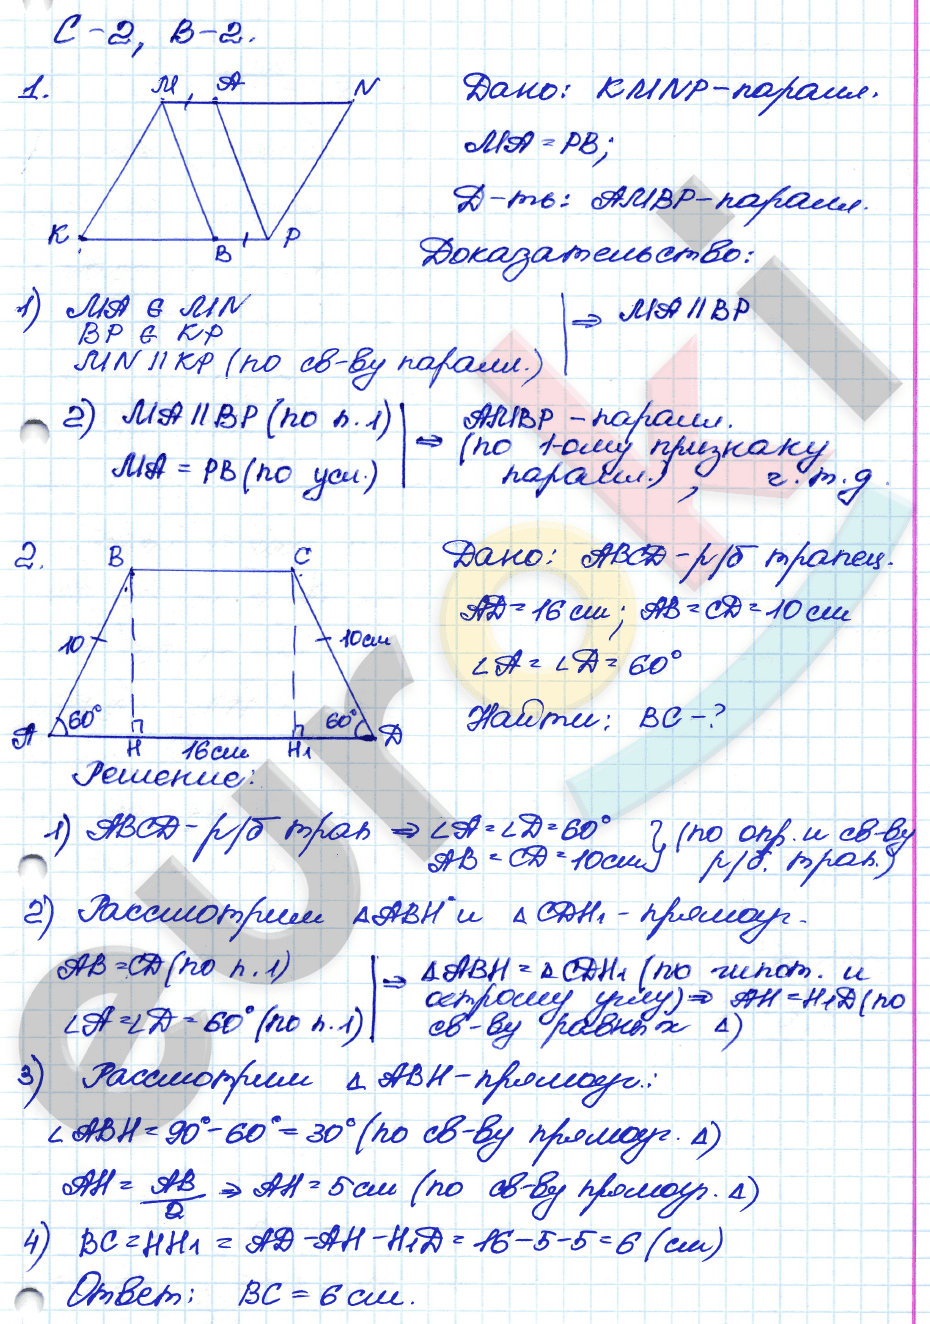 С-2, В-2.
1.
M A N
K B P
Дано: KMNP-паралл.
MA = PB;
Д-ть: AMBP-паралл.
Доказательство:
1) MA ∈ MN
BP ∈ KP
MN || KP (по св-ву паралл.)
⇒ MA || BP
2) MA || BP (по п.1)
MA = PB (по усл.)
⇒ AMBP - паралл.
(по 1-ому признаку
паралл.), ч.т.д.
2.
B C
10 10см
A 60° H 16см H₁ 60° D
Дано: ABCD-р/б трапец.
AD = 16 см; AB = CD = 10 см
∠A = ∠D = 60°
Найти: BC-?
Решение:
1) ABCD - р/б трап ⇒ ∠A = ∠D = 60° } (по опр. и св-ву
AB = CD = 10см } р/б. трап.)
2) Рассмотрим △ABH и △CDH₁ - прямоуг.
AB = CD (по п.1)
∠A = ∠D = 60° (по п.1)
⇒ △ABH = △CDH₁ (по гипот. и
острому углу) ⇒ AH = H₁D (по
св-ву равных △)
3) Рассмотрим △ABH - прямоуг.:
∠ABH = 90° - 60° = 30° (по св-ву прямоуг. △)
AH = AB/2 ⇒ AH = 5 см (по св-ву прямоуг. △)
4) BC = HH₁ = AD - AH - H₁D = 16 - 5 - 5 = 6 (см)
Ответ: BC = 6 см.
euroki